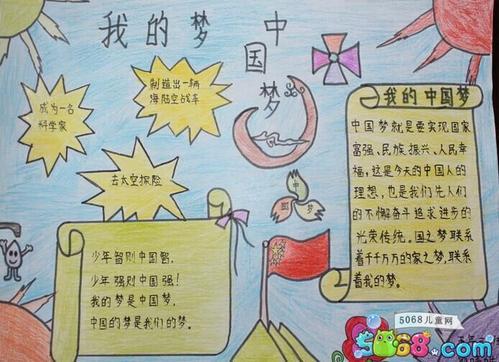 我的梦 中国梦
成为一名
科学家
制造出一辆
海陆空战车
去太空探险
中
国
梦
少年智则中国智,
少年强则中国强!
我的梦是中国梦,
中国的梦是我们的梦。
我的中国梦
中国梦就是要实现国家
富强、民族振兴、人民幸
福,这是今天的中国人的
理想,也是我们先人们
的不懈奋斗追求进步的
光荣传统。国之梦联系
着千千万万的家之梦,联系
着我的梦。
5068儿童网
5068.com